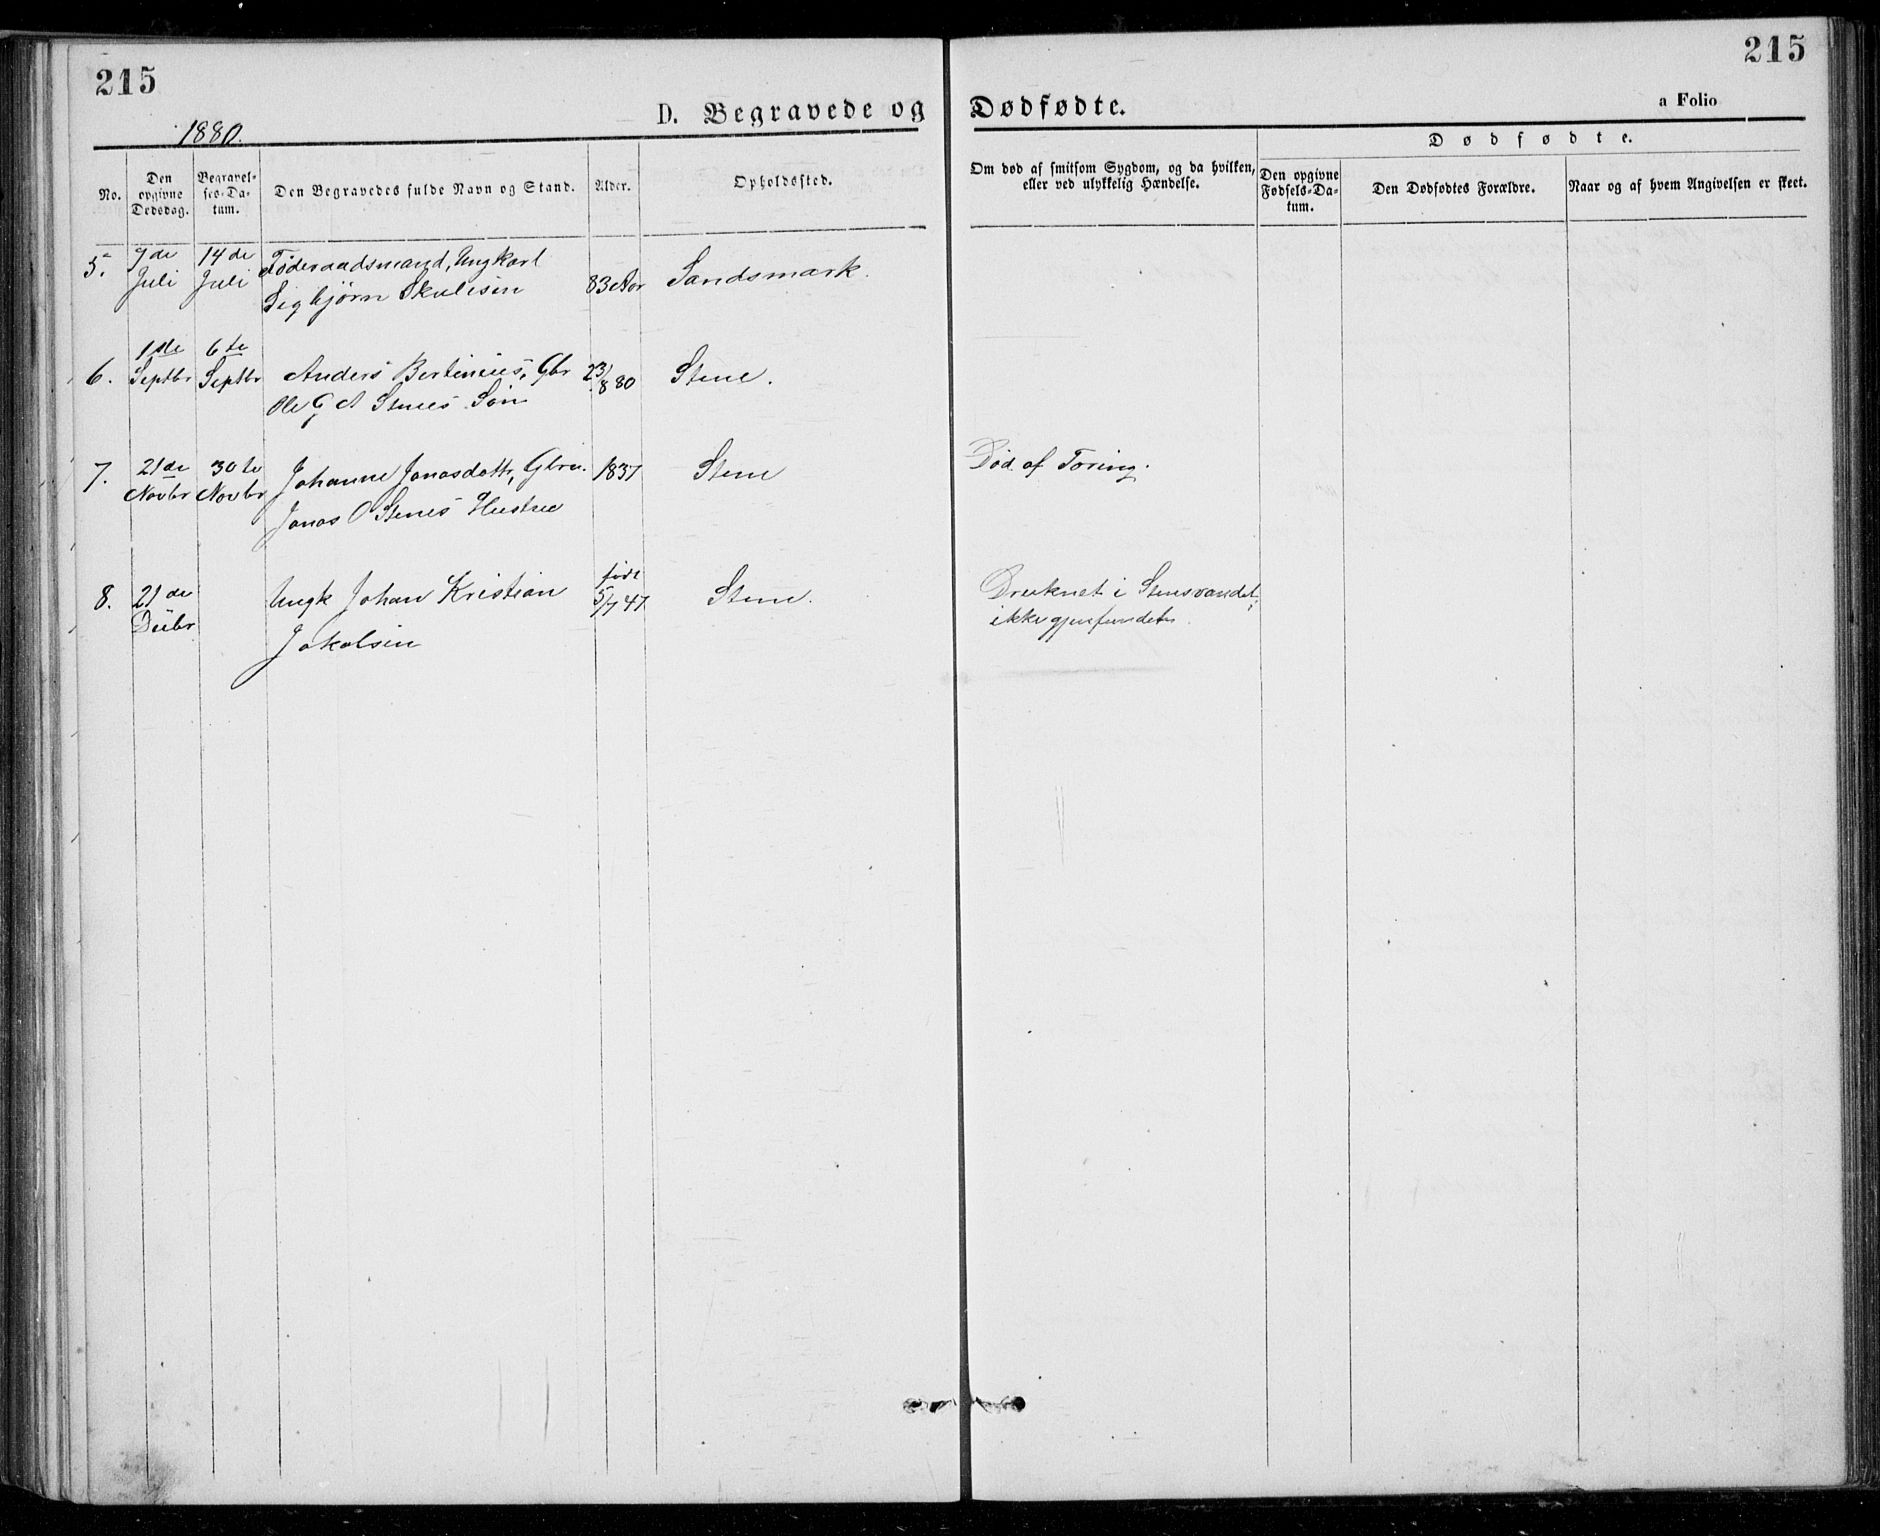 215
215
D. Begravede og Dødfødte.
a Folio
1880.
Dødfødte.
No.
Den opgivne Dødsdag.
Begravelses-Datum.
Den Begravedes fulde Navn og Stand.
Alder.
Opholdssted.
Om død af smitsom Sygdom, og da hvilken, eller ved ulykkelig Hændelse.
Den opgivne Fødsels-Datum.
Den Dødfødtes Forældre.
Naar og af hvem Angivelsen er skeet.
5. 7de 14de Føderaadsmand, Ungkarl
Juli Juli Sigbjørn Skulesen 83 Aar Sandsmark.
1ste 6te
6. Septbr Septbr Anders Bertinius, Gbr 23/8 80 Stene.
Ole G A Stenes Søn
7. 21de 30te Johanne Jonasdattr, Gbru. 1837 Stene Død af Tæring.
Novbr Novbr
Jonas O Stenes Hustru
født
8. 21de Ungk Johan Kristian 5/7 47 Stene. Druknet i Stensvandet,
Decbr ikke gjenfundet.
Jakobsen